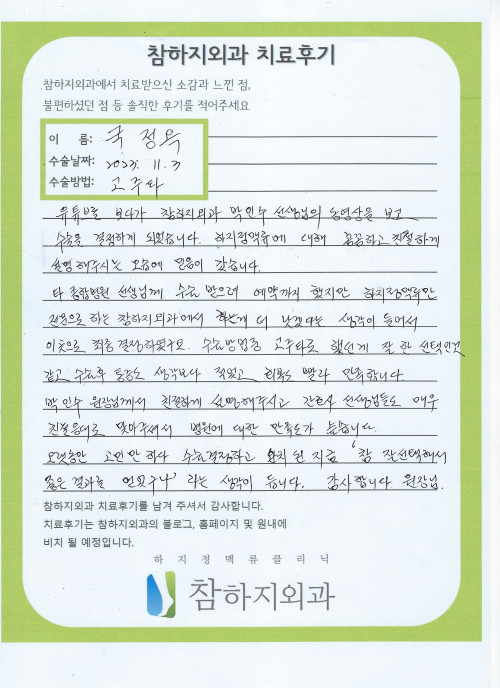 참하지외과 치료후기
참하지외과에서 치료받으신 소감과 느낀 점,
불편하셨던 점 등 솔직한 후기를 적어주세요
이 름: 국정욱
수술날짜: 2023. 11. 3
수술방법: 고주파
유튜브를 보다가 참하지외과 박인수 선생님의 동영상을 보고
수술을 결정하게 되었습니다. 하지정맥류에 대해 꼼꼼하고 친절하게
설명해주시는 모습에 믿음이 갔습니다.
타 종합병원 선생님께 수술 받으려 예약까지 했지만 하지정맥류만
전문으로 하는 참하지외과에서 하는게 더 낫겠다는 생각이 들어서
이곳으로 최종 결정하였구요. 수술방법중 고주파로 했던게 잘 한 선택인것
같고 수술후 통증도 생각보다 적었고 회복도 빨라 만족합니다.
박인수 원장님께서 친절하게 설명해주시고 간호사 선생님들도 매우
친절응대로 맞아주셔서 병원에 대한 만족도가 높습니다.
오랫동안 고민만 하다 수술결정하고 완치된 지금 '참 잘선택해서
좋은 결과를 얻었구나' 라는 생각이 듭니다. 감사합니다 원장님.
참하지외과 치료후기를 남겨 주셔서 감사합니다.
치료후기는 참하지외과의 블로그, 홈페이지 및 원내에
비치 될 예정입니다.
하지정맥류클리닉
참하지외과